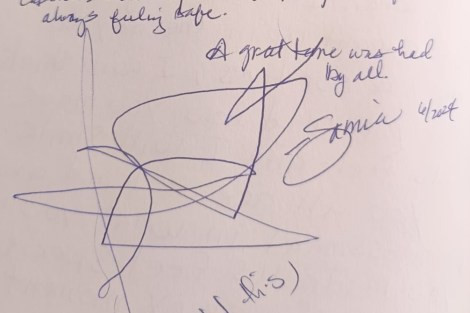 always feeling safe.
A great time was had
by all.
Samia 6/2024
this)